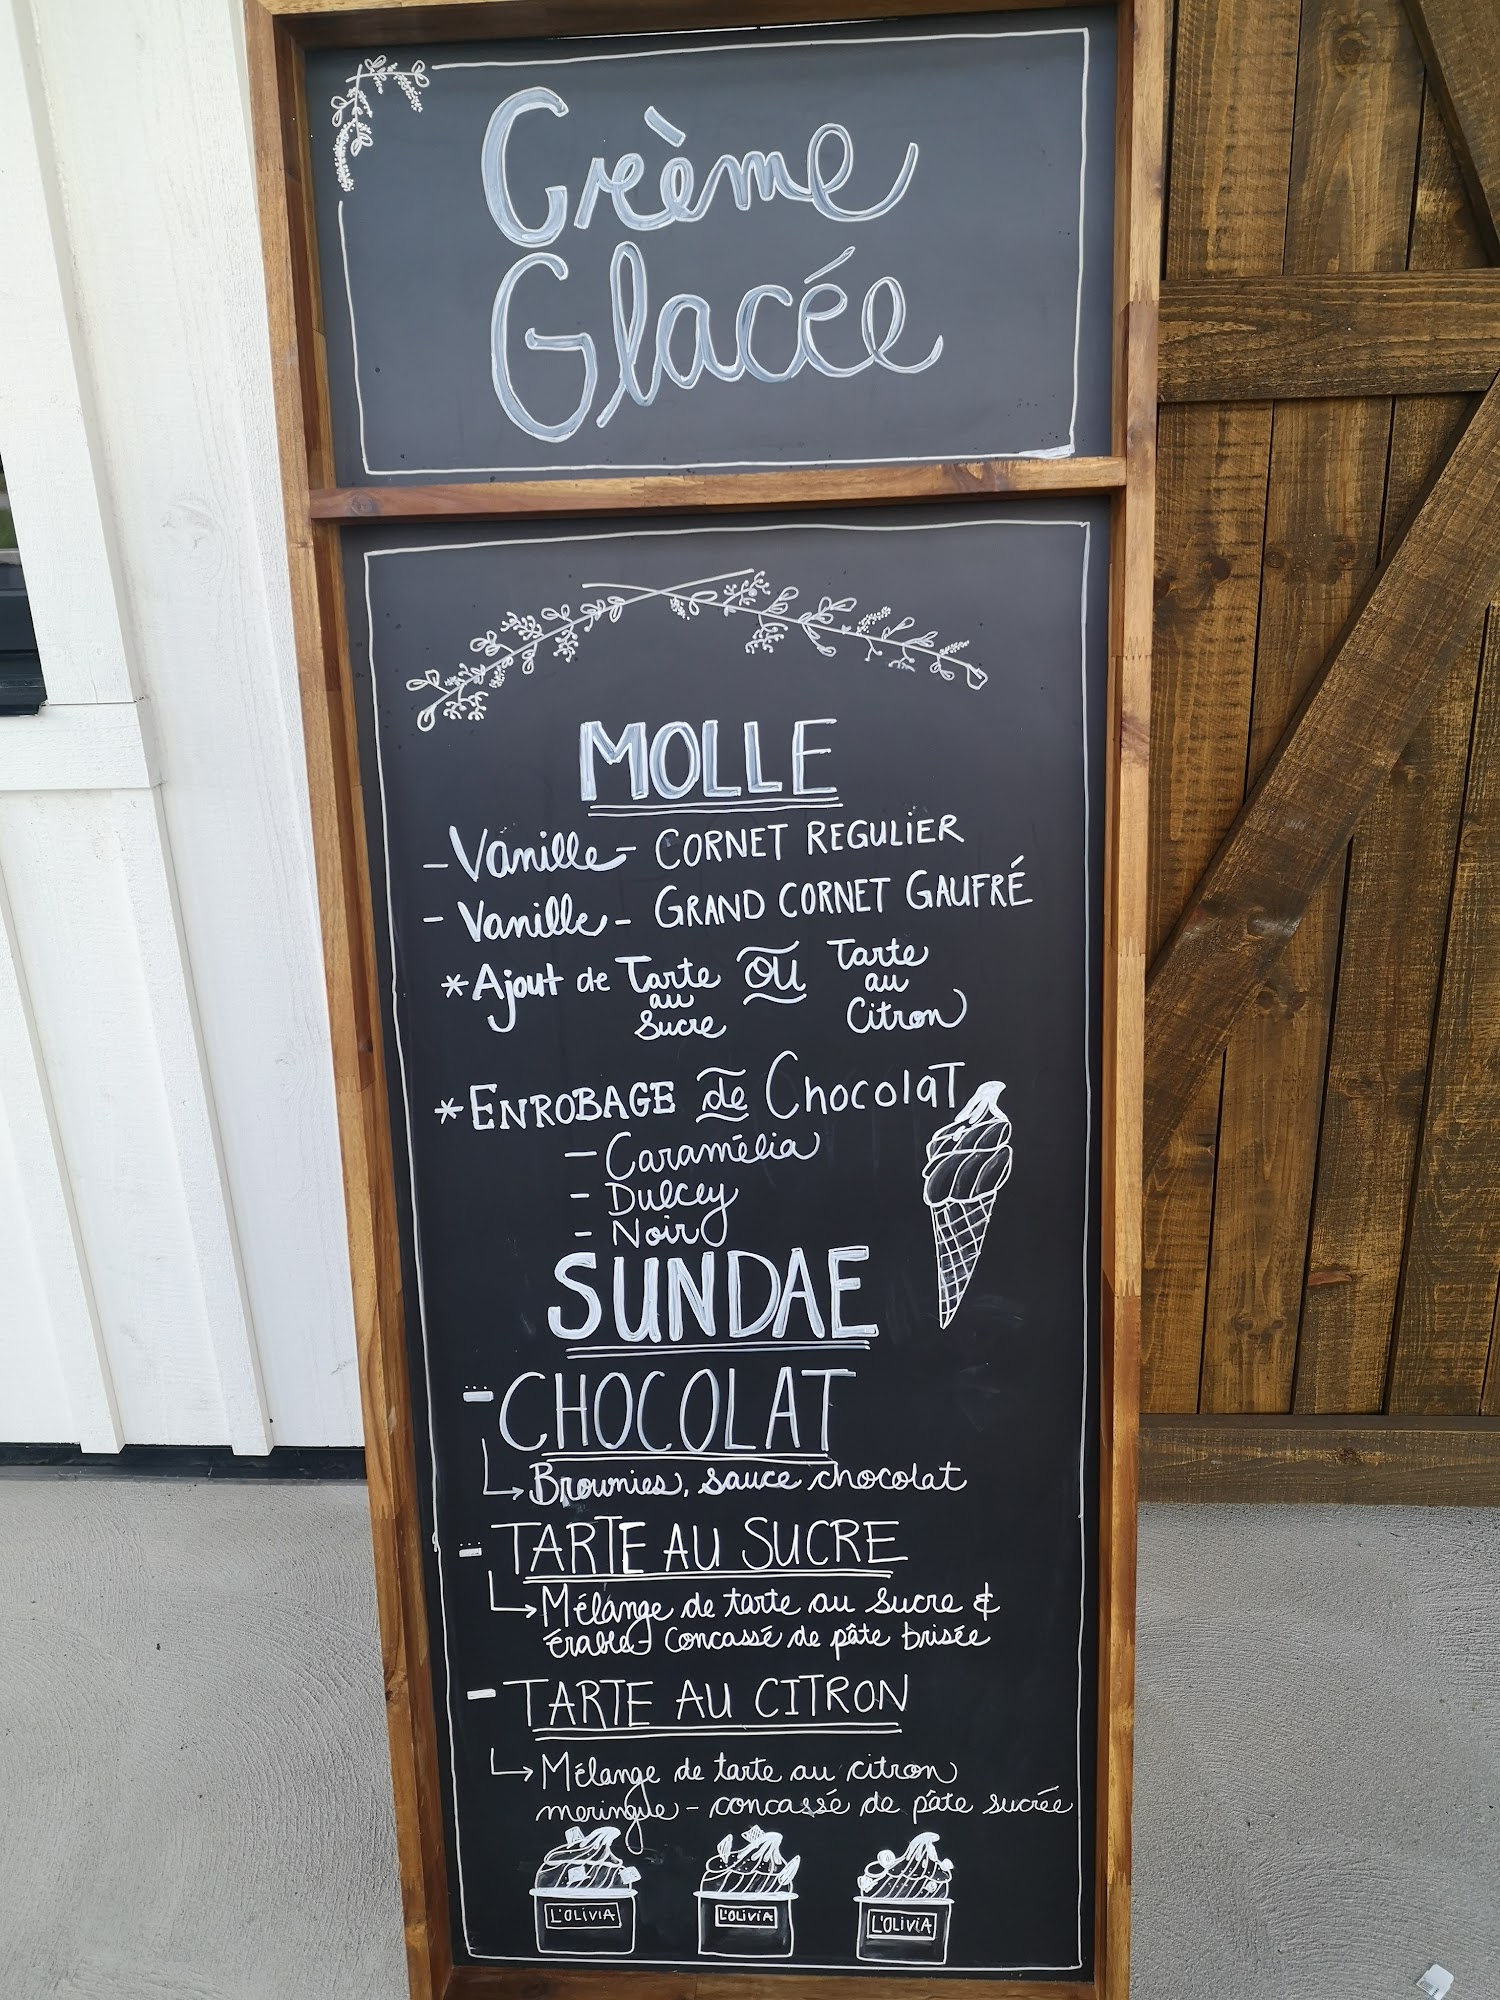 Crème
Glacée
MOLLE
- Vanille - CORNET REGULIER
- Vanille - GRAND CORNET GAUFRÉ
* Ajout de Tarte au Sucre OU Tarte au Citron
* ENROBAGE de Chocolat
- Caramélia
- Dulcey
- Noir
SUNDAE
- CHOCOLAT
↳ Brownies, sauce chocolat
- TARTE AU SUCRE
↳ Mélange de tarte au sucre &
érable - concassé de pâte brisée
- TARTE AU CITRON
↳ Mélange de tarte au citron
meringue - concassé de pâte sucrée
L'OLIVIA L'OLIVIA L'OLIVIA